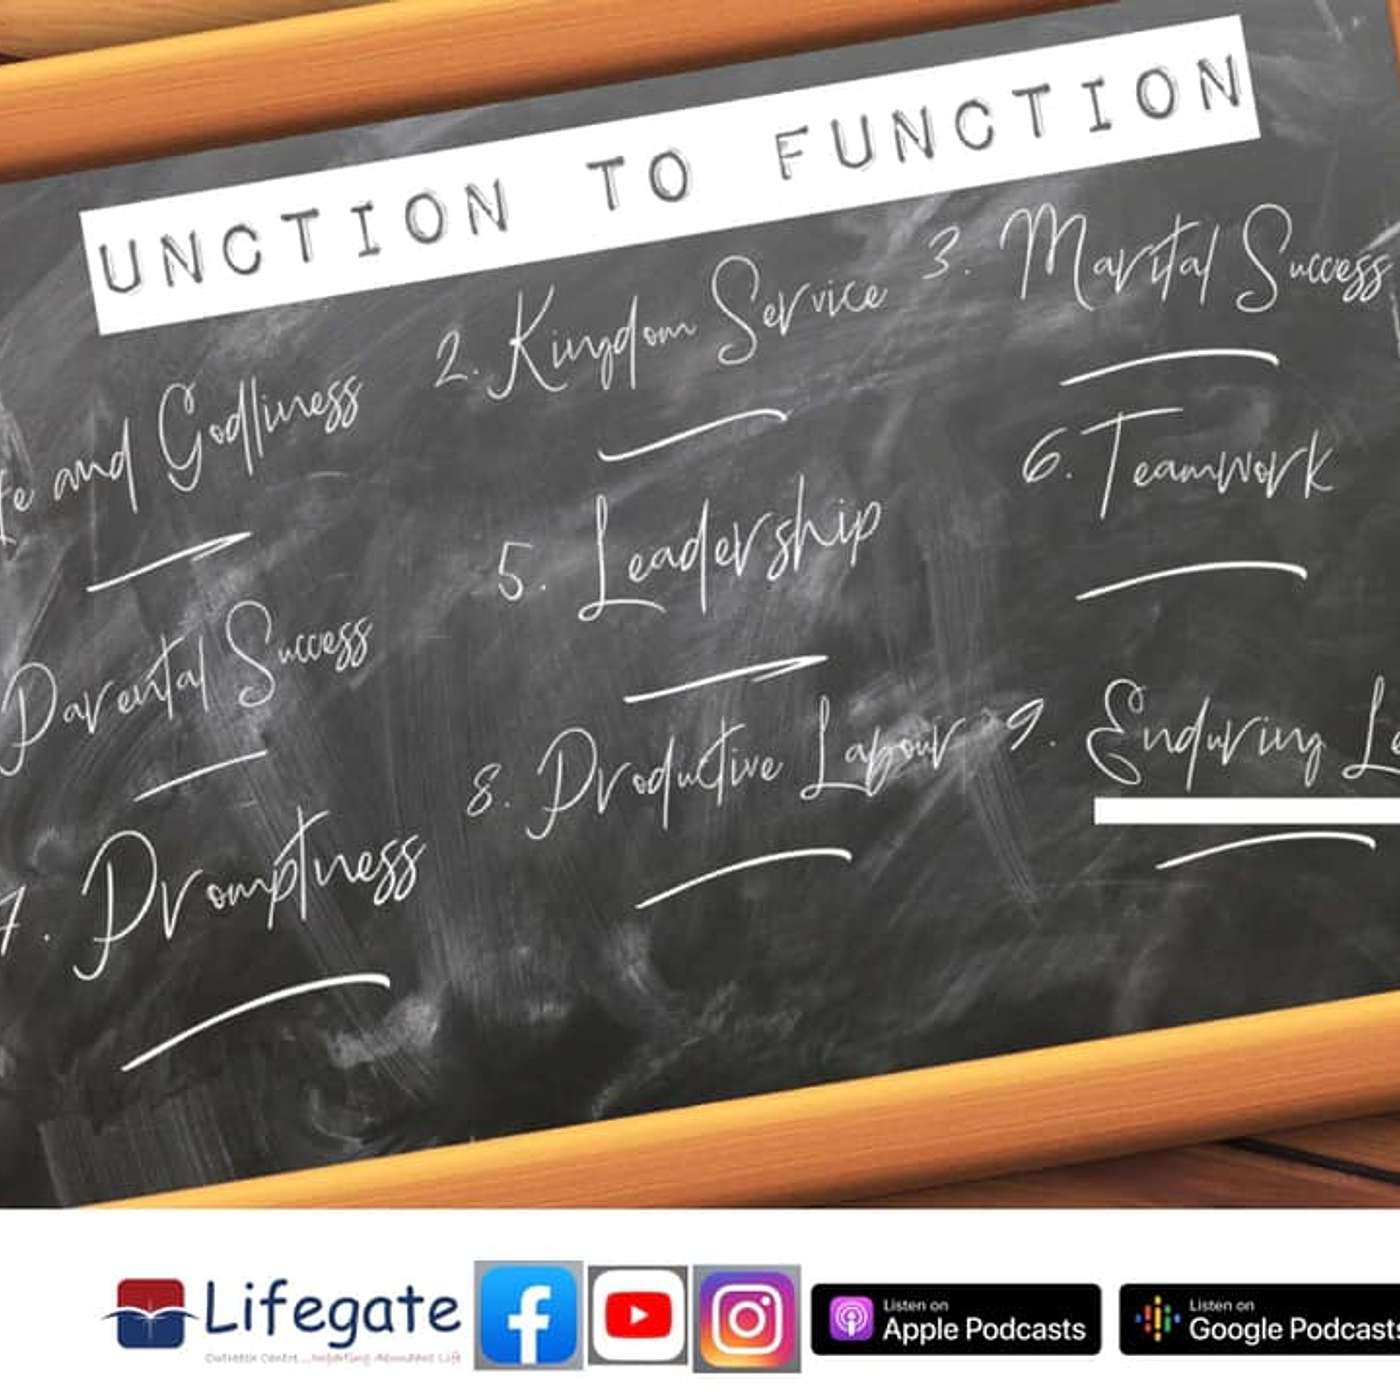 UNCTION TO FUNCTION
and Godliness
2. Kingdom Service
3. Marital Success
Parental Success
5. Leadership
6. Teamwork
7. Promptness
8. Productive Labour
9. Enduring
Lifegate
Outreach Centre ...imparting Abundant Life
Listen on
Apple Podcasts
Listen on
Google Podcasts